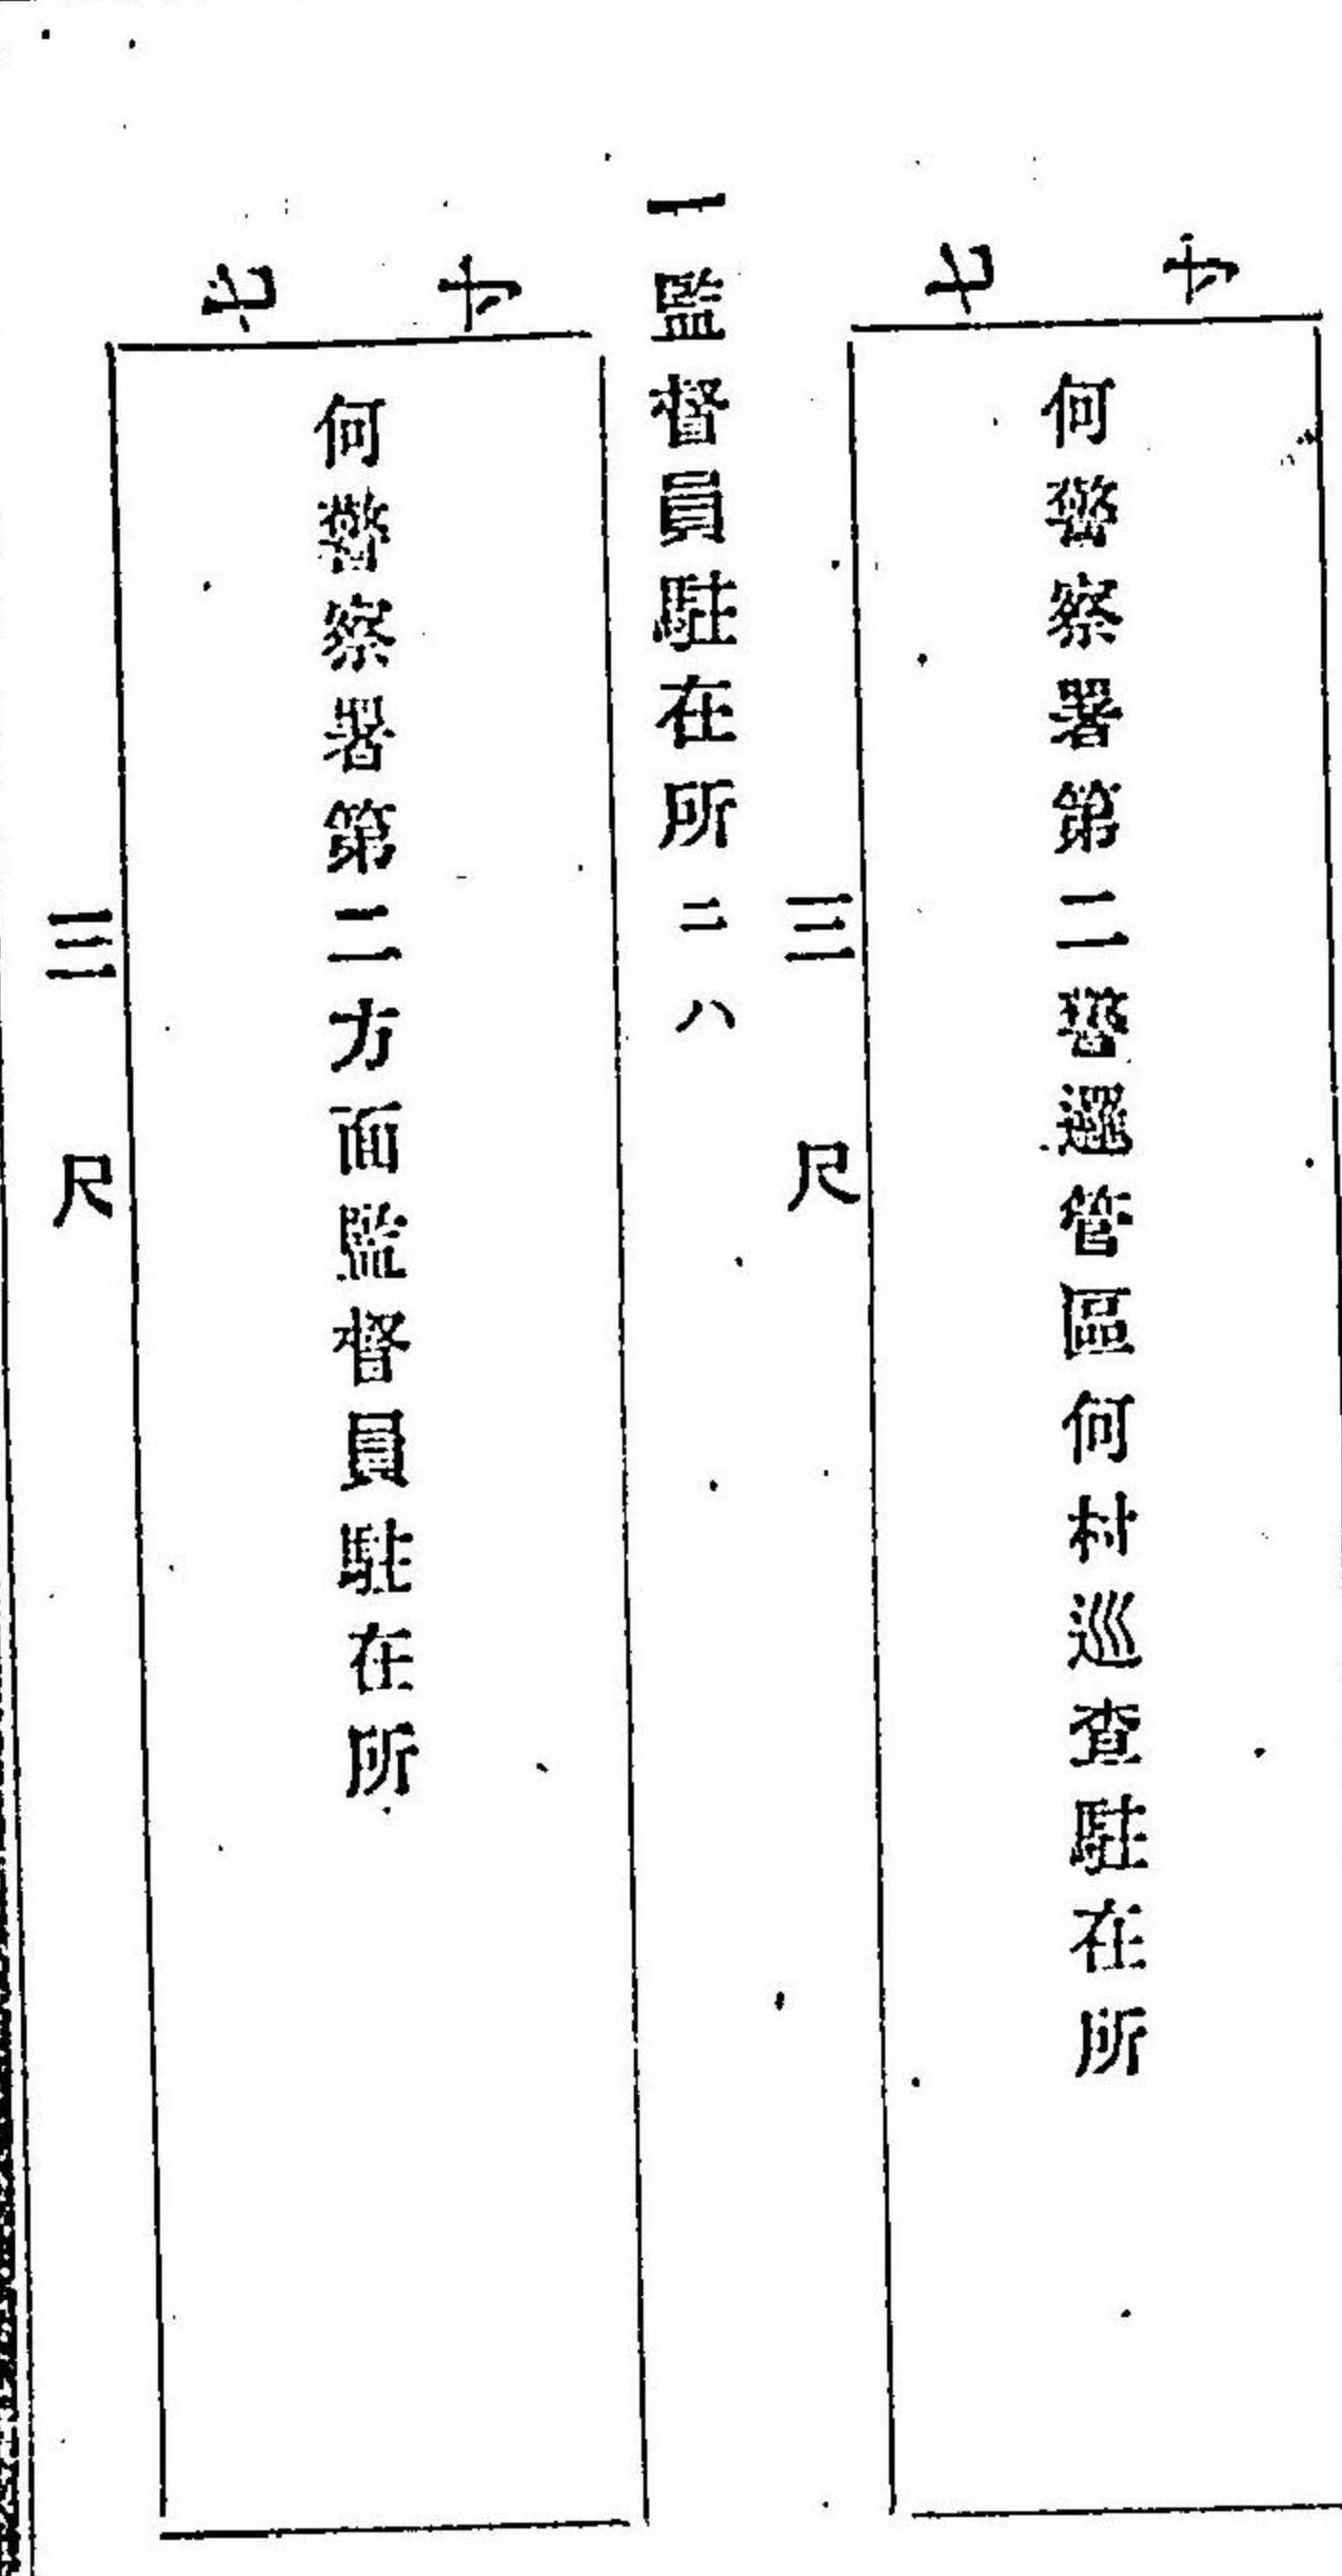 七寸
何警察署第二警邏管區何村巡査駐在所
三尺
一監督員駐在所ニハ
七寸
何警察署第二方面監督員駐在所
三尺